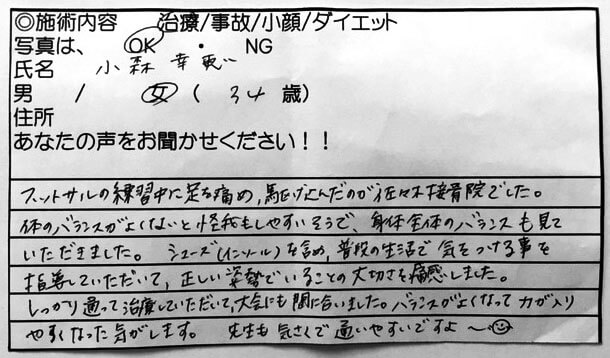 ◎施術内容　治療/事故/小顔/ダイエット
写真は、　OK　・　NG
氏名　小森 幸恵
男　/　女　(　34　歳)
住所
あなたの声をお聞かせください！！
フットサルの練習中に足を痛め、駆け込んだのが佐々木接骨院でした。
体のバランスがよくないと怪我もしやすいそうで、身体全体のバランスも見て
いただきました。　シューズ(インソール)を含め、普段の生活で気をつける事を
指導していただいて、正しい姿勢でいることの大切さを痛感しました。
しっかり通って治療していただいて、大会にも間に合いました。バランスがよくなって力が入り
やすくなった気がします。　先生も気さくで通いやすいですよ〜☺